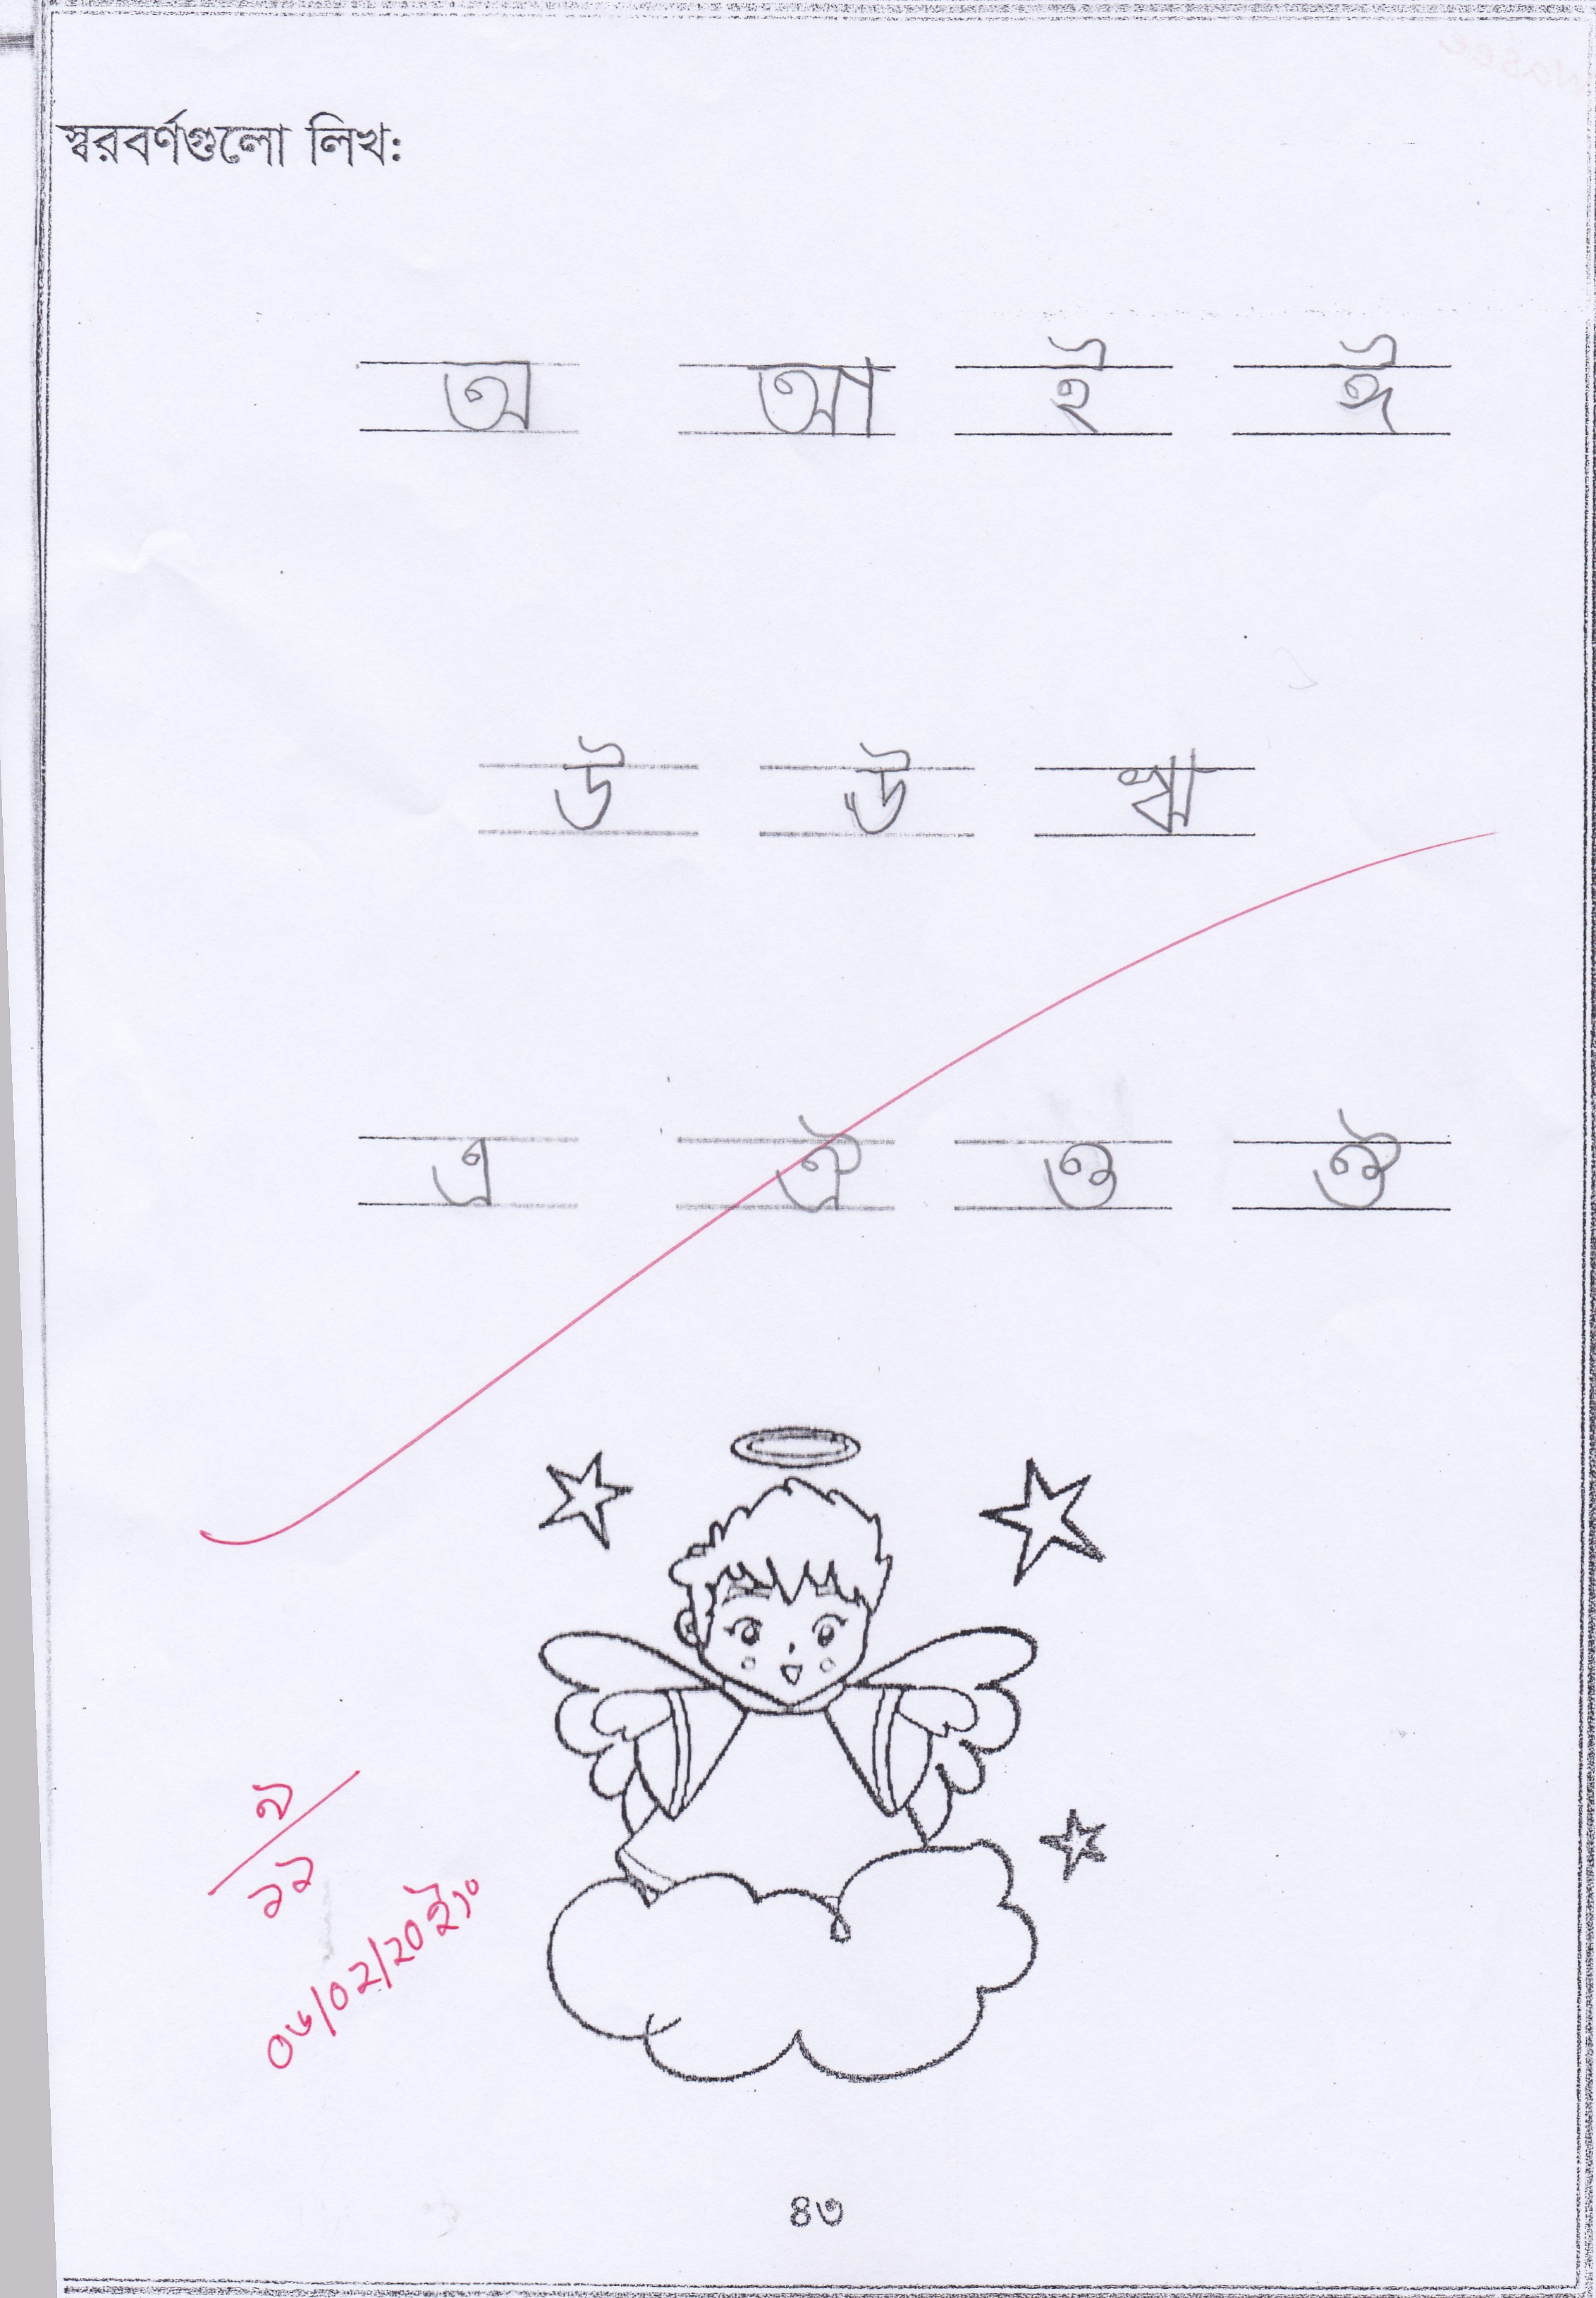 স্বরবর্ণগুলো লিখ:
অ আ ই ঈ
উ ঊ ঋ
এ ঐ ও ঔ
১১
০৬/০২/২০
৪৩